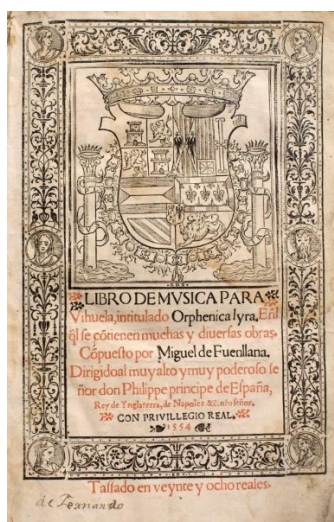 LIBRO DE MVSICA PARA
Vihuela, intitulado Orphenica lyra. Enl
ql se cõtienen muchas y diuersas obras.
Cõpuesto por Miguel de Fuenllana.
Dirigido al muy alto y muy poderoso se
ñor don Philippe principe de España,
Rey de Ynglaterra, de Napoles &c. nr̃o señor.
CON PRIVILLEGIO REAL.
1554
Tassado en veynte y ocho reales.
de Fernando